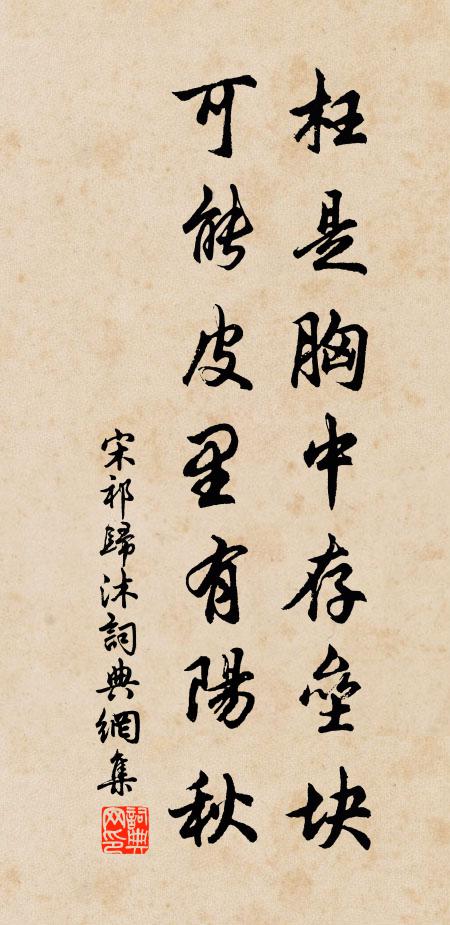 枉是胸中存垒块
可能皮里有陽秋
宋祁歸沐詞典網集
詞典网印